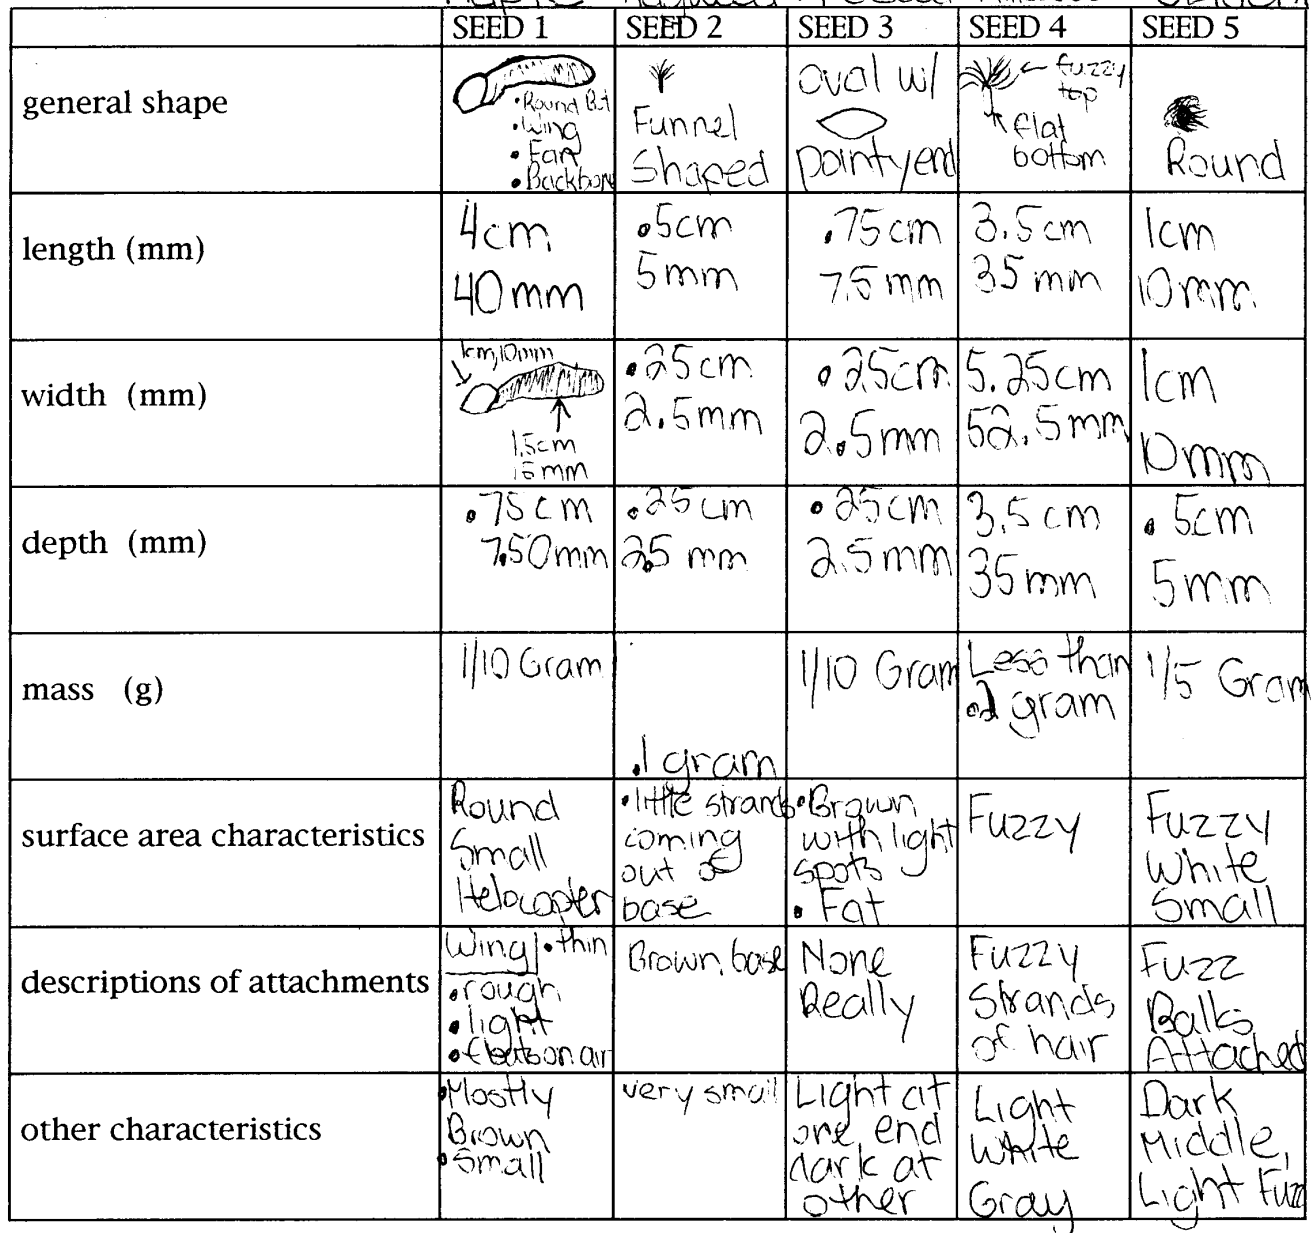 SEED 1 SEED 2 SEED 3 SEED 4 SEED 5
general shape
• Round But
• Wing
• Fan
• Backbone
Funnel
Shaped
oval w/
pointy end
← fuzzy
top
flat
bottom
Round
length (mm)
4cm
40mm
.5cm
5mm
.75cm
7.5mm
3.5cm
35mm
1cm
10mm
width (mm)
1cm, 10mm
1.5cm
15mm
.25cm
2.5mm
.25cm
2.5mm
5.25cm
52.5mm
1cm
10mm
depth (mm)
.75cm
7.50mm
.25cm
2.5 mm
.25cm
2.5mm
3.5cm
35mm
.5cm
5mm
mass (g)
1/10 Gram
.1 gram
1/10 Gram
Less than
.1 gram
1/5 Gram
surface area characteristics
Round
Small
Helocopter
• little strands
coming
out of
base
• Brown
with light
spots
• Fat
Fuzzy
Fuzzy
White
Small
descriptions of attachments
Wing • thin
• rough
• light
• floats on air
Brown base
None
Really
Fuzzy
Strands
of hair
Fuzz
Balls
Attached
other characteristics
• Mostly
Brown
• Small
very small
Light at
one end
dark at
other
Light
White
Gray
Dark
Middle,
Light Fuzz